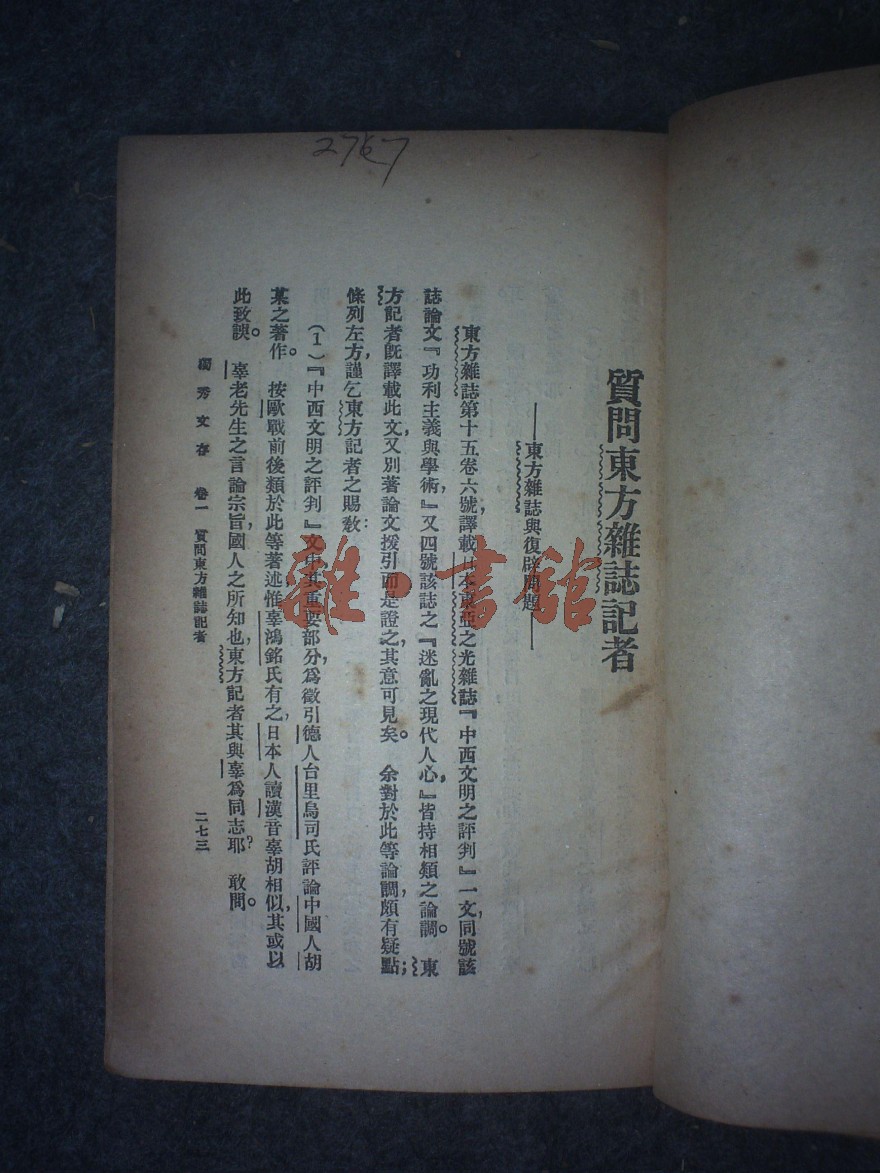 2767
質問東方雜誌記者
——東方雜誌與復辟問題——
東方雜誌第十五卷六號，譯載日本東亞之光雜誌『中西文明之評判』一文，同號該
誌論文『功利主義與學術』又四號該誌之『迷亂之現代人心，』皆持相類之論調。東
方記者旣譯載此文，又別著論文援引而是證之，其意可見矣。余對於此等論調，頗有疑點；
條列左方，謹乞東方記者之賜敎：
（1）『中西文明之評判』文中，其重要部分，爲徵引德人台里烏司氏評論中國人胡
某之著作。按歐戰前後，類於此等著述，惟辜鴻銘氏有之，日本人讀漢音辜胡相似，其或以
此致誤。辜老先生之言論宗旨，國人之所知也，東方記者其與辜爲同志耶？敢問。
獨秀文存　卷一　質問東方雜誌記者
二七三
雜·書館